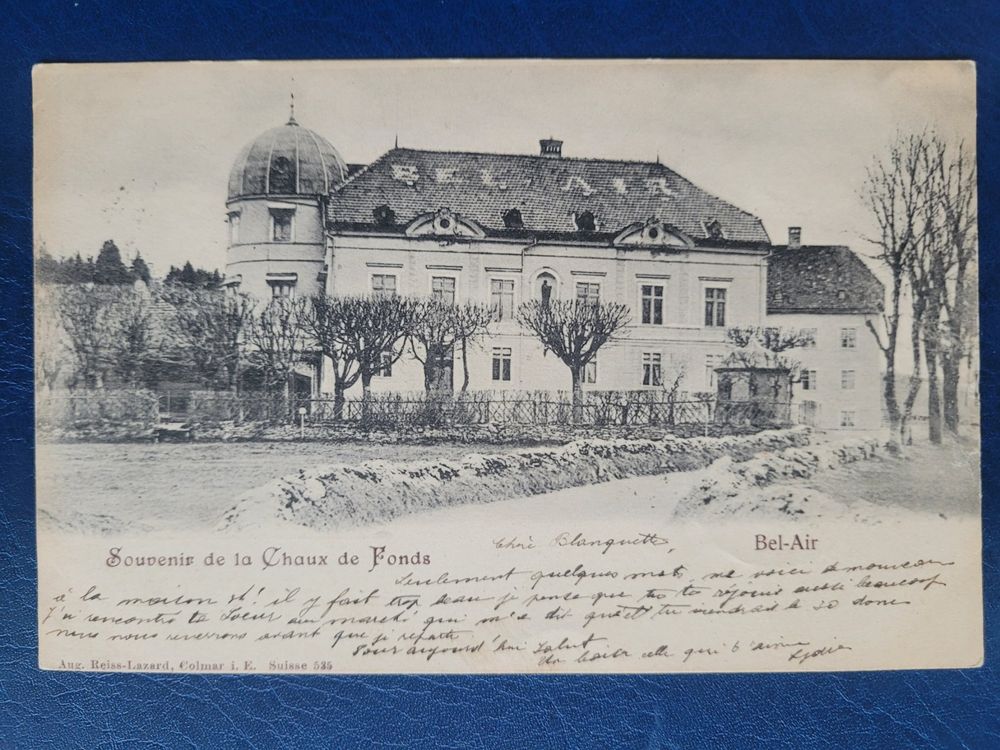 BEL-AIR
Souvenir de la Chaux de Fonds
Bel-Air
Chère Blanquette,
Seulement quelques mots, me voici de nouveau
à la maison et il y fait trop beau je pense que tu te rejouis aussi beaucoup
J'ai rencontré ta Soeur au marché qui m'a dit que tu viendras le 20 donc
nous nous reverrons avant que je reparte
Pour aujourd'hui Salut
Un baiser celle qui t'aime
Lydie
Aug. Reiss-Lazard, Colmar i. E. Suisse 535